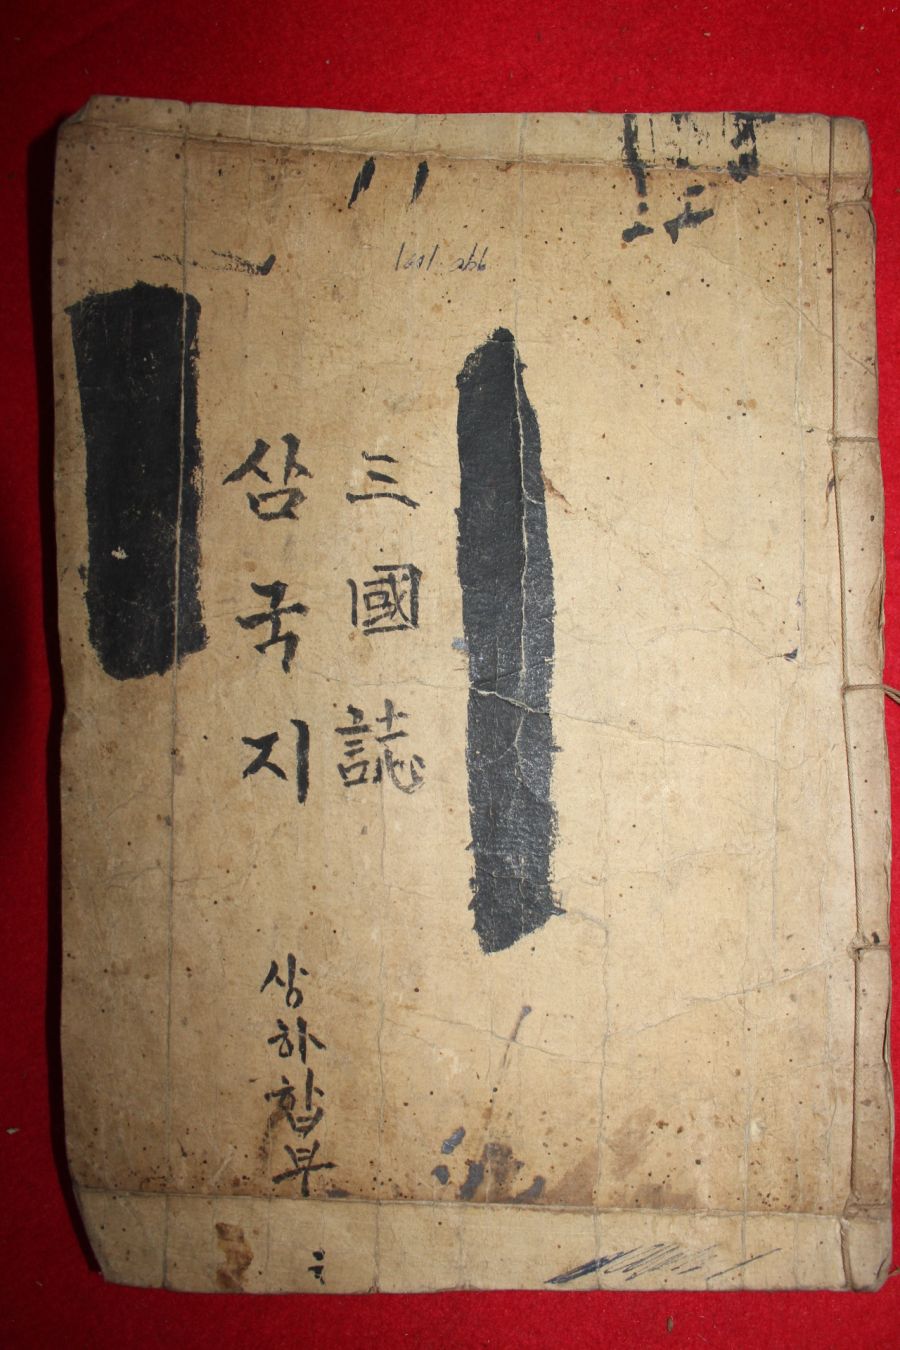 三國誌
삼국지
상하합부